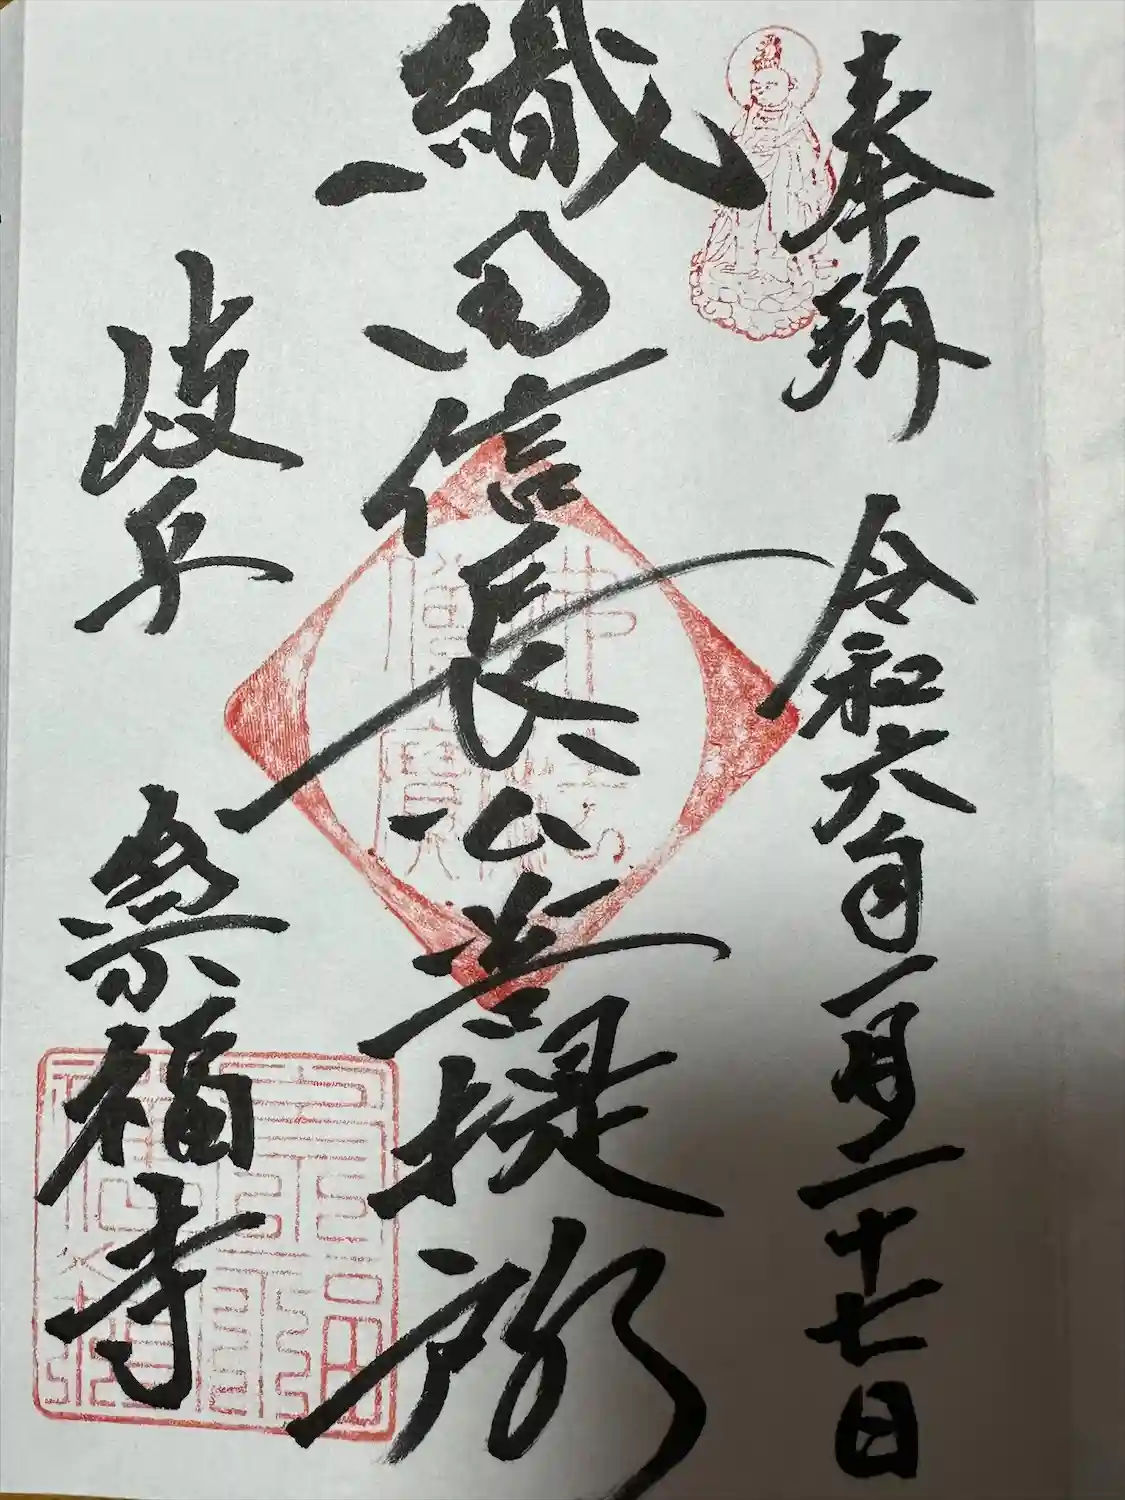 奉拝　令和六年一月二十七日
織田信長公菩提所
岐阜　崇福寺